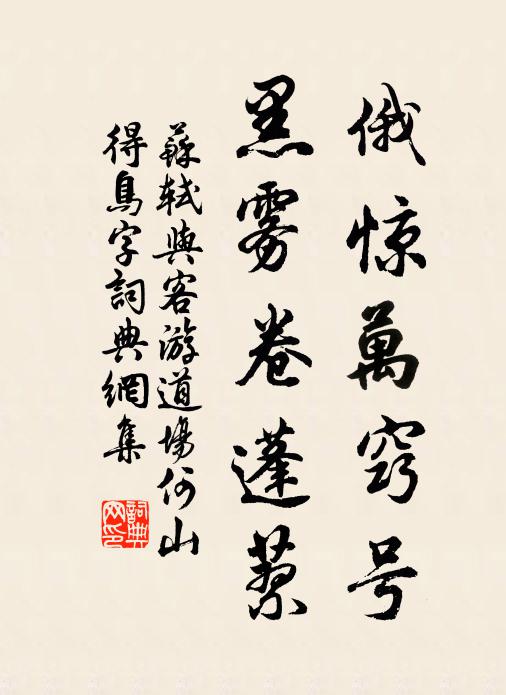 俄惊萬窍号
黑雾卷蓬蓼
蘇軾與客游道場何山
得鳥字詞典網集
詞典
网印